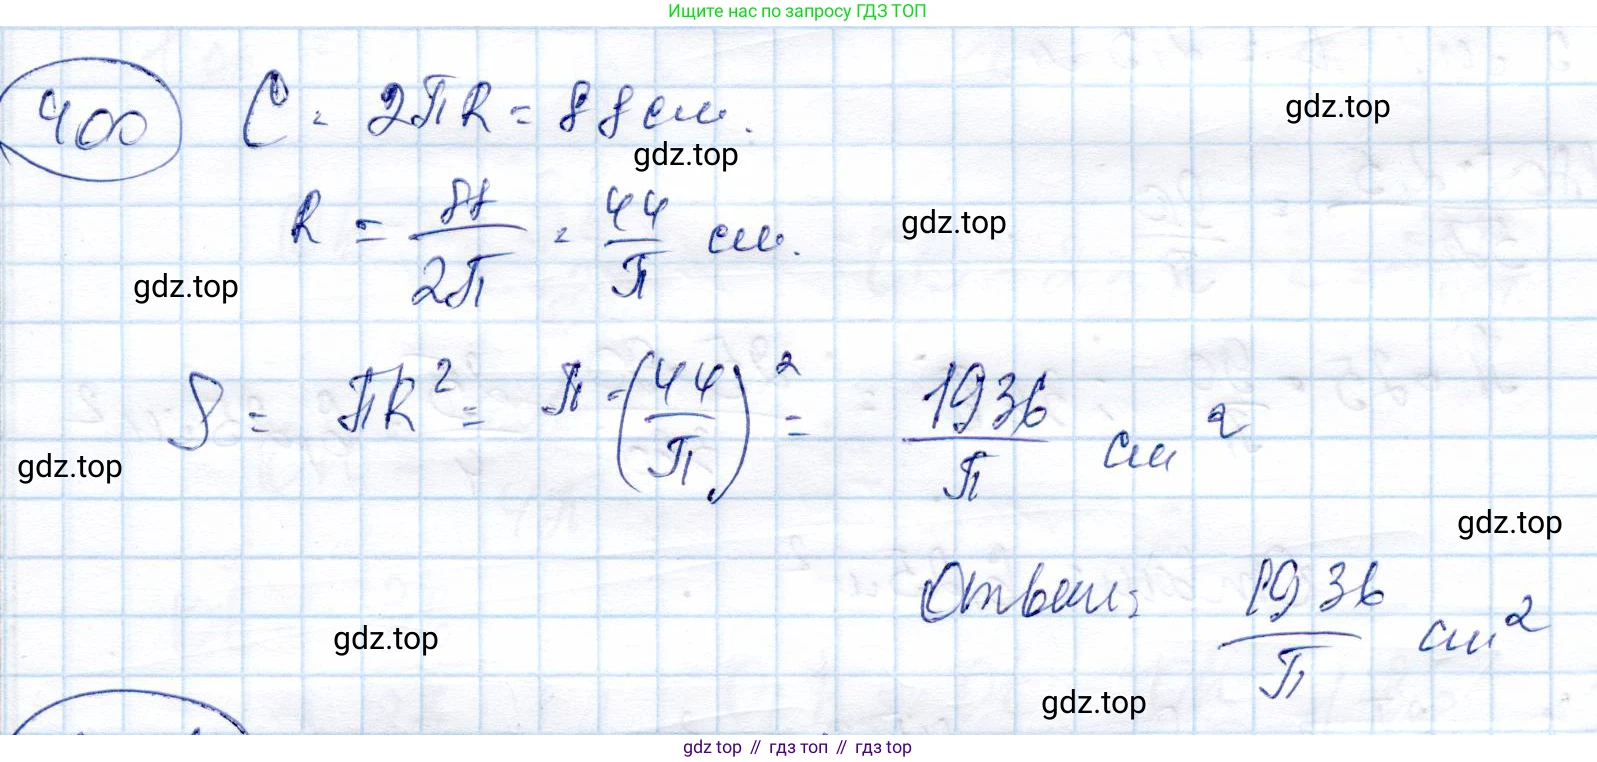 Ищите нас по запросу ГДЗ ТОП
400 C = 2πR = 88 см.
gdz.top
gdz.top
R = 88/2π = 44/π см.
gdz.top
gdz.top
S = πR² = π · (44/π)² = 1936/π см²
gdz.top
gdz.top
Ответ: 1936/π см²
gdz.top
gdz.top
gdz top // гдз топ // gdz top